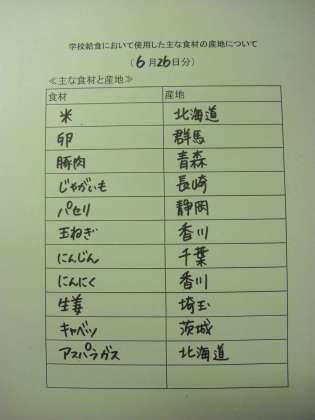 学校給食において使用した主な食材の産地について
（6月26日分）
≪主な食材と産地≫
食材 産地
米 北海道
卵 群馬
豚肉 青森
じゃがいも 長崎
パセリ 静岡
玉ねぎ 香川
にんじん 千葉
にんにく 香川
生姜 埼玉
キャベツ 茨城
アスパラガス 北海道